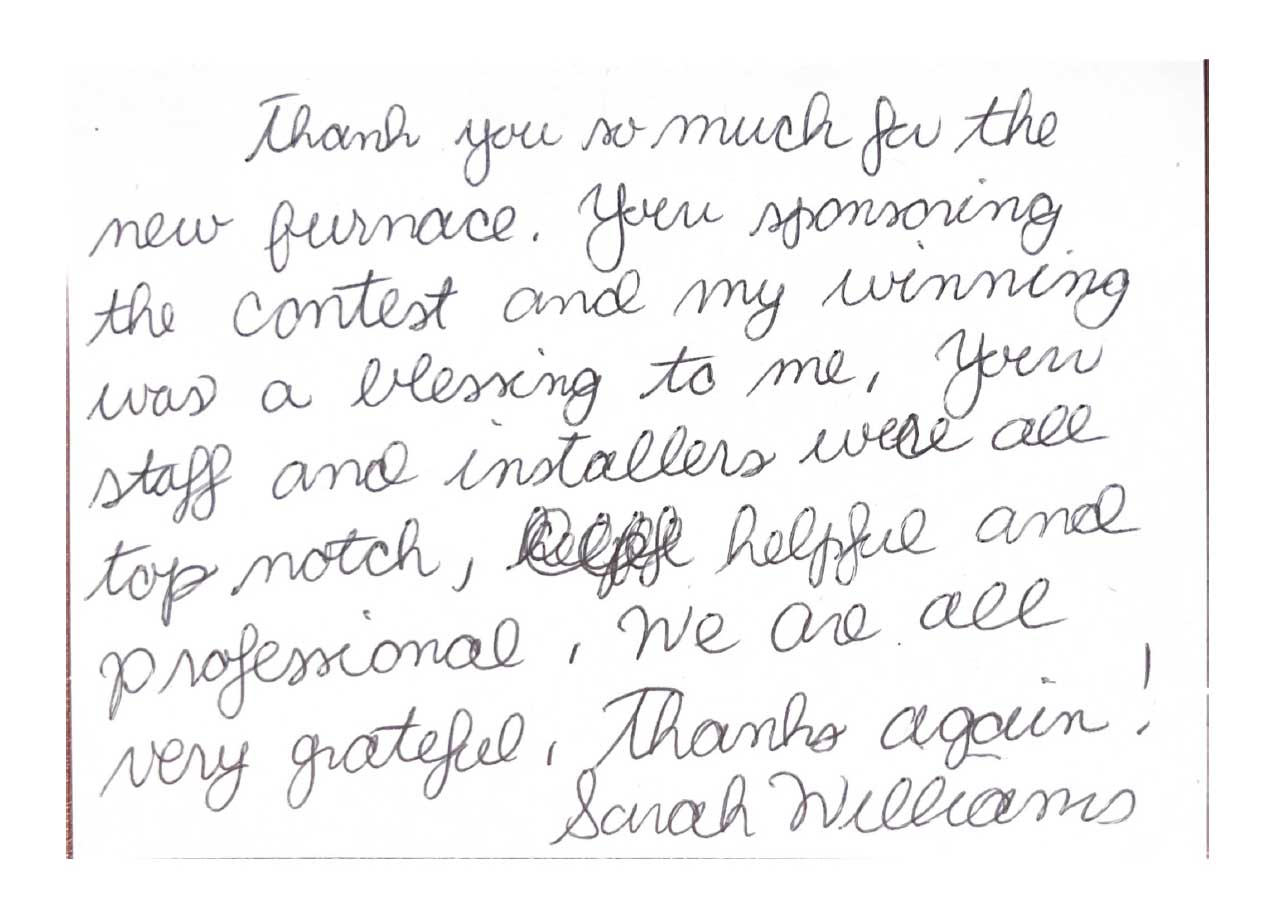 Thank you so much for the
new furnace. Your sponsoring
the contest and my winning
was a blessing to me. Your
staff and installers were all
top notch, helpful and
professional. We are all
very grateful. Thanks again!
Sarah Williams